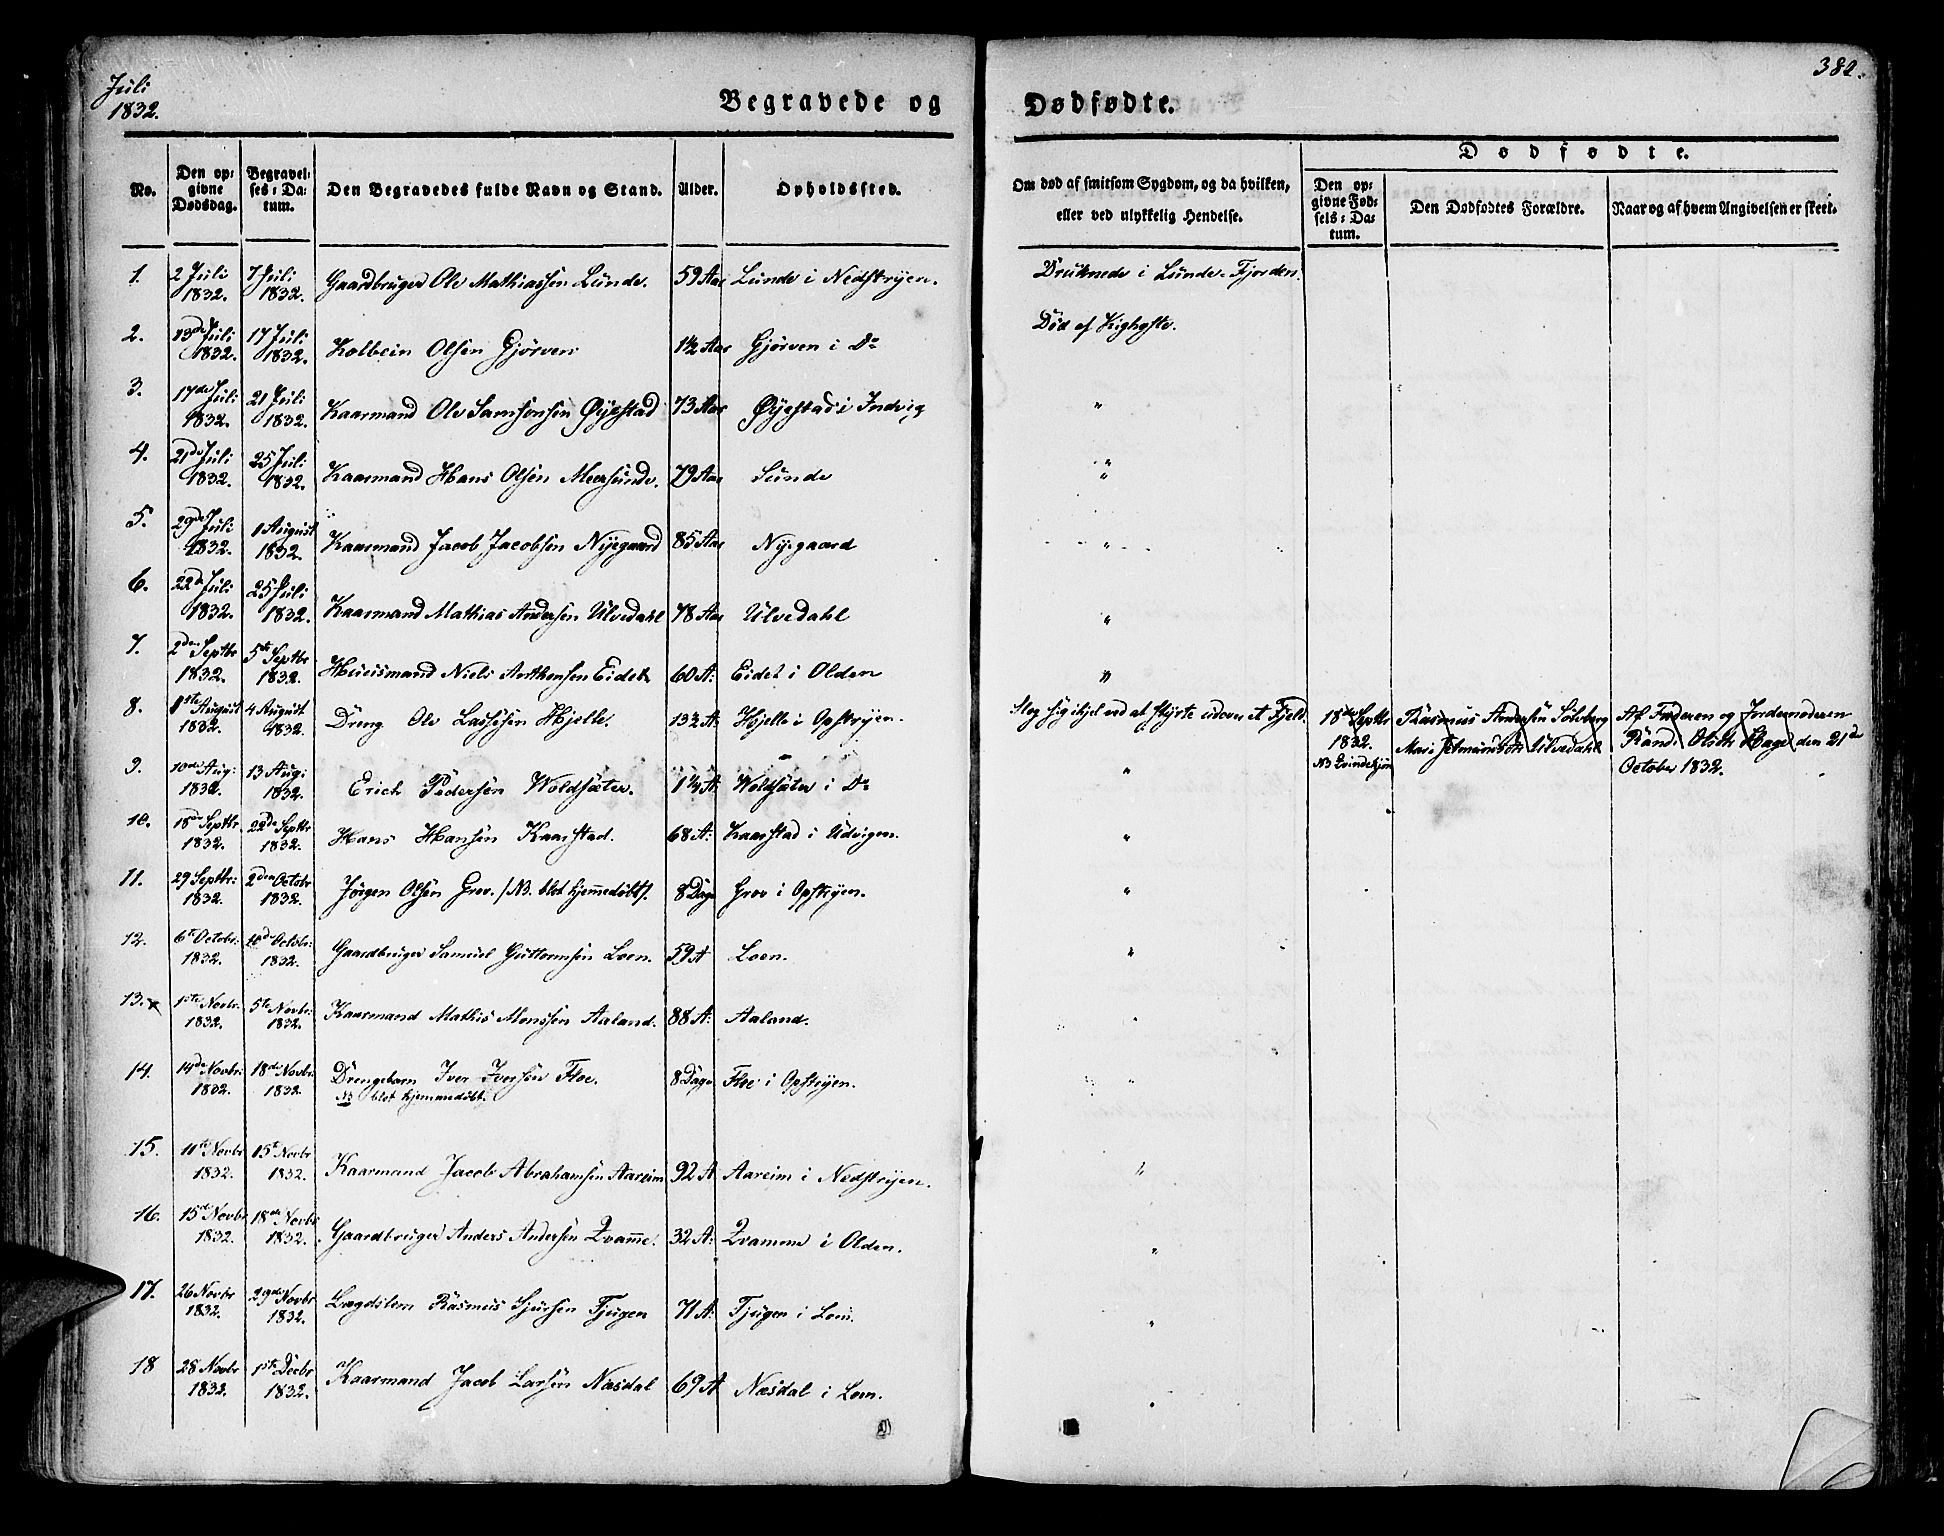 Juli
1832.
Begravede og
Dødfødte.
382.
No.
Den op-
givne
Dødsdag.
Begravel-
ses-Da-
tum.
Den Begravedes fulde Navn og Stand.
Alder.
Opholdssted.
Om død af smitsom Sygdom, og da hvilken,
eller ved ulykkelig Hendelse.
Dødfødte.
Den op-
givne Fød-
sels-Da-
tum.
Den Dødfødtes Forældre.
Naar og af hvem Angivelsen er skeet.
1. 2 Juli 1832. 7 Juli 1832. Gaardbruger Ole Mathiassen Lunde. 59 Aar Lunde i Nedstryen. Druknede i Lunde-Fjorden.
2. 13de Juli 1832. 17 Juli 1832. Kolbein Olsen Gjørven 1½ Aar Gjørven i Do Død af Kighoste.
3. 17de Juli 1832. 21 Juli 1832. Kaarmand Ole Samsonsen Øyestad 73 Aar Øyestad i Indvig "
4. 21de Juli 1832. 25 Juli 1832. Kaarmand Hans Olsen Meersunde. 79 Aar Sunde "
5. 29de Juli 1832. 1 August 1832. Kaarmand Jacob Jacobsen Nyegaard 85 Aar Nyegaard "
6. 22de Juli 1832. 25 Juli 1832. Kaarmand Mathias Andersen Ulvedahl 78 Aar Ulvedahl "
7. 2den Septbr 1832. 5te Septbr 1832. Huusmand Niels Anthonsen Eidet 60 A: Eidet i Olden "
8. 1ste August 1832. 4 August 1832. Dreng Ole Lassesen Hjelle. 13½ A: Hjelle i Opstryen. Slog sig ihjel ved at styrte udover et Fjeld. 18de Septbr 1832. NB Qvindekjøn Rasmus Andersen Solberg Mari Ulvedahl Af Faderen og Jordemoderen Randi Olsdtr Hage den 21de October 1832.
9. 10de Aug: 1832. 13 Aug: 1832. Erich Pedersen Woldsæter. 1¼ A Woldsæter i Do "
10. 18de Septbr 1832. 22de Septbr 1832. Hans Hansen Kaarstad. 68 A: Kaarstad i Udvigen. "
11. 29 Septbr: 1832. 2den Octobr 1832. Jørgen Olsen Grov. /NB. blot hjemmedøbt/. 8 Dage Grov i Opstryen. "
12. 6te Octobr: 1832. 10de Octobr: 1832. Gaardbruger Samuel Guttormsen Loen. 59 A Loen. "
13. x 1ste Novbr: 1832. 5te Novbr: 1832. Kaarmand Mathis Monssen Aaland. 88 A: Aaland. "
14. 14de Novbr: 1832. 18de Novbr: 1832. Drengebarn Iver Iversen Floe. 8 Dage Floe i Opstryen. "
NB blot hjemmedøbt.
15. 11te Novbr 1832. 15te Novbr 1832. Kaarmand Jacob Abrahamsen Aareim 92 A Aareim i Nedstryen. "
16. 15de Novbr 1832. 18de Novbr 1832. Gaardbruger Anders Andersen Qvam̅e. 32 A: Qvamme i Olden. "
17. 26 Novbr 1832. 29de Novbr 1832. Lægdslem Rasmus Sjursen Tjugen 71 A: Tjugen i Loen. "
18 28 Novbr 1832. 1ste Decbr 1832. Kaarmand Jacob Larsen Næsdal 69 A Næsdal i Loen. "